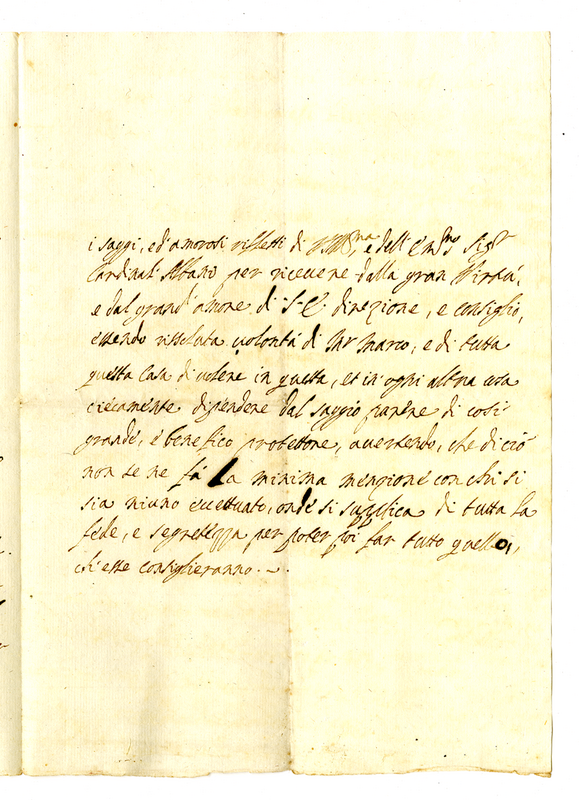 i saggi, ed amorosi riflessi di VS Ill.ma, e dell' Em.mo Sig.r
Cardinal' Albano per ricevere dalla gran Virtù,
e dal grand' amore di S. E. direzione, e consiglio,
essendo rissoluta volontà di Mr Marco, e di tutta
questa Casa di volere in questa, et in ogni altra cosa
ciecamente dipendere dal saggio parere di così
grande, e benefico protettore, avertendo, che di ciò
non se ne fà la minima menzione con chi si
sia niuno eccettuato, onde si supplica di tutta la
fede, e segretezza per poter poi far tutto quello,
ch' esse consiglieranno. -.